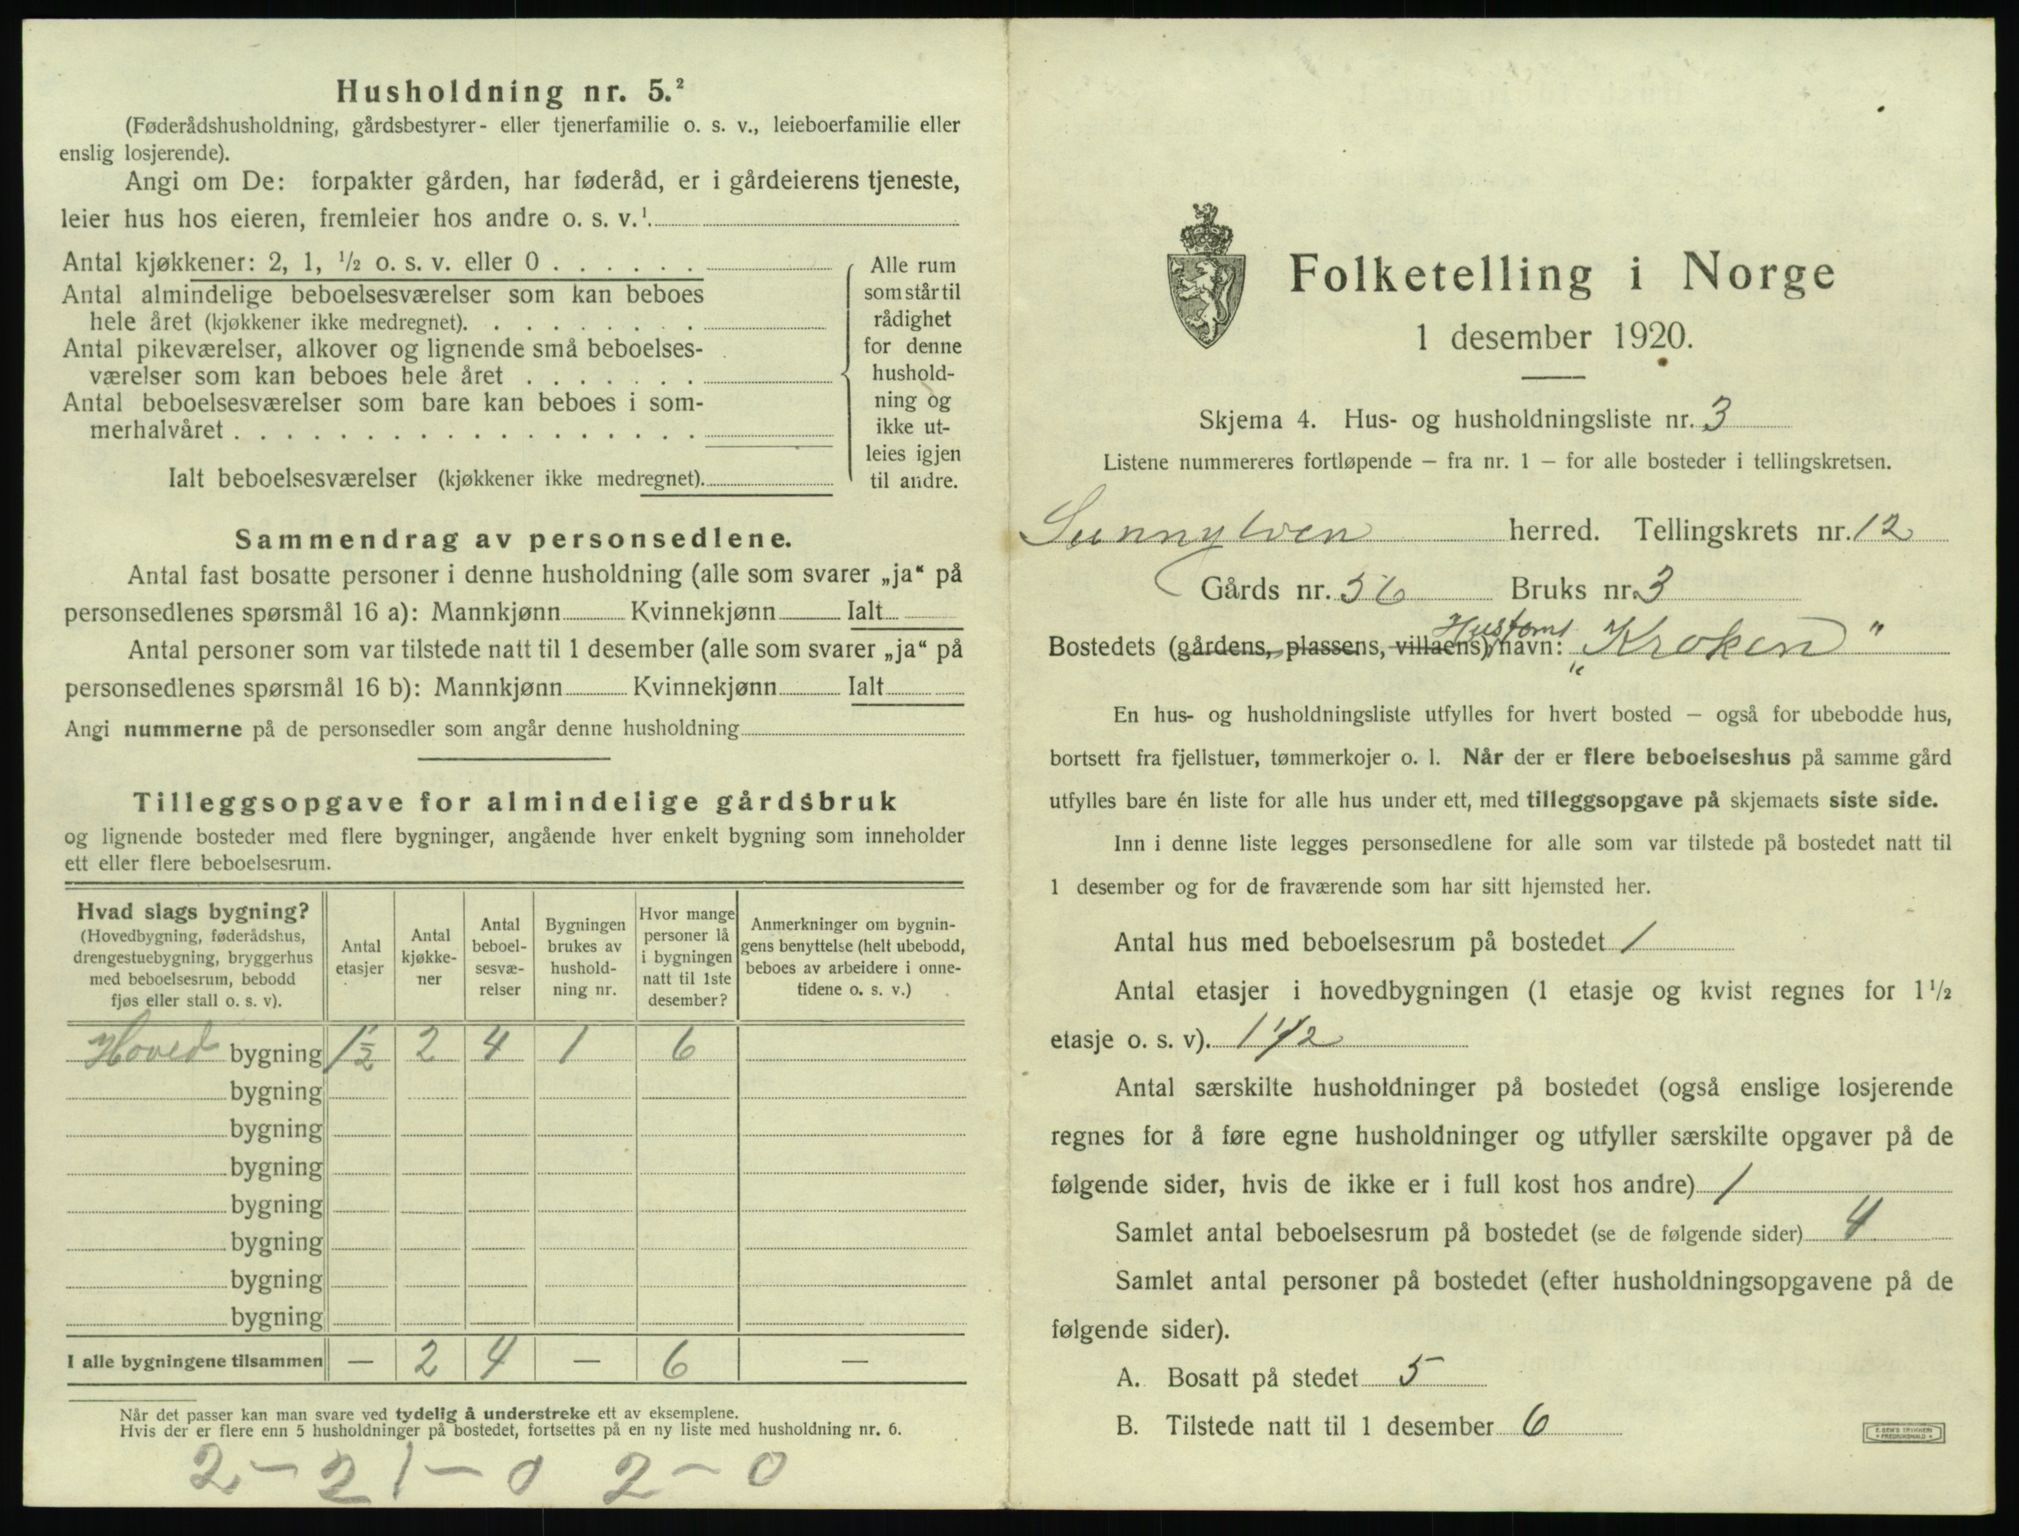 Husholdning nr. 5.²
(Føderådshusholdning, gårdsbestyrer- eller tjenerfamilie o. s. v., leieboerfamilie eller
enslig losjerende).
Angi om De: forpakter gården, har føderåd, er i gårdeierens tjeneste,
leier hus hos eieren, fremleier hos andre o. s. v.¹
Antal kjøkkener: 2, 1, ½ o. s. v. eller 0 . . . . . .
Antal almindelige beboelsesværelser som kan beboes
hele året (kjøkkener ikke medregnet). . . . . . . . .
Antal pikeværelser, alkover og lignende små beboelses-
værelser som kan beboes hele året . . . . . . .
Antal beboelsesværelser som bare kan beboes i som-
merhalvåret . . . . . . . . . . . . . . . . . .
Ialt beboelsesværelser (kjøkkener ikke medregnet).
Alle rum
som står til
rådighet
for denne
hushold-
ning og
ikke ut-
leies igjen
til andre.
Sammendrag av personsedlene.
Antal fast bosatte personer i denne husholdning (alle som svarer „ja“ på
personsedlenes spørsmål 16 a): Mannkjønn Kvinnekjønn Ialt
Antal personer som var tilstede natt til 1 desember (alle som svarer „ja“ på
personsedlenes spørsmål 16 b): Mannkjønn Kvinnekjønn Ialt
Angi nummerne på de personsedler som angår denne husholdning
Tilleggsopgave for almindelige gårdsbruk
og lignende bosteder med flere bygninger, angående hver enkelt bygning som inneholder
ett eller flere beboelsesrum.
Hvad slags bygning?
(Hovedbygning, føderådshus,
drengestuebygning, bryggerhus
med beboelsesrum, bebodd
fjøs eller stall o. s. v).
Antal
etasjer
Antal
kjøkke-
ner
Antal
beboel-
sesvæ-
relser
Bygningen
brukes av
hushold-
ning nr.
Hvor mange
personer lå
i bygningen
natt til 1ste
desember?
Anmerkninger om bygnin-
gens benyttelse (helt ubebodd,
beboes av arbeidere i onne-
tidene o. s. v.)
Hoved bygning 1½ 2 4 1 6
bygning
bygning
bygning
bygning
bygning
bygning
bygning
I alle bygningene tilsammen — 2 4 — 6 —
Når det passer kan man svare ved tydelig å understreke ett av eksemplene.
Hvis der er flere enn 5 husholdninger på bostedet, fortsettes på en ny liste med husholdning nr. 6.
2 – 2 1 – 0 2 – 0
Folketelling i Norge
1 desember 1920.
Skjema 4. Hus- og husholdningsliste nr. 3
Listene nummereres fortløpende – fra nr. 1 – for alle bosteder i tellingskretsen.
Sunnylven herred. Tellingskrets nr. 12
Gårds nr. 56 Bruks nr. 3
Hustomt
Bostedets (gårdens, plassens, villaens) navn: „Kroken“
En hus- og husholdningsliste utfylles for hvert bosted – også for ubebodde hus,
bortsett fra fjellstuer, tømmerkojer o. l. Når der er flere beboelseshus på samme gård
utfylles bare én liste for alle hus under ett, med tilleggsopgave på skjemaets siste side.
Inn i denne liste legges personsedlene for alle som var tilstede på bostedet natt til
1 desember og for de fraværende som har sitt hjemsted her.
Antal hus med beboelsesrum på bostedet 1
Antal etasjer i hovedbygningen (1 etasje og kvist regnes for 1½
etasje o. s. v). 1½
Antal særskilte husholdninger på bostedet (også enslige losjerende
regnes for å føre egne husholdninger og utfyller særskilte opgaver på de
følgende sider, hvis de ikke er i full kost hos andre) 1
Samlet antal beboelsesrum på bostedet (se de følgende sider) 4
Samlet antal personer på bostedet (efter husholdningsopgavene på de
følgende sider).
A. Bosatt på stedet 5
B. Tilstede natt til 1 desember 6